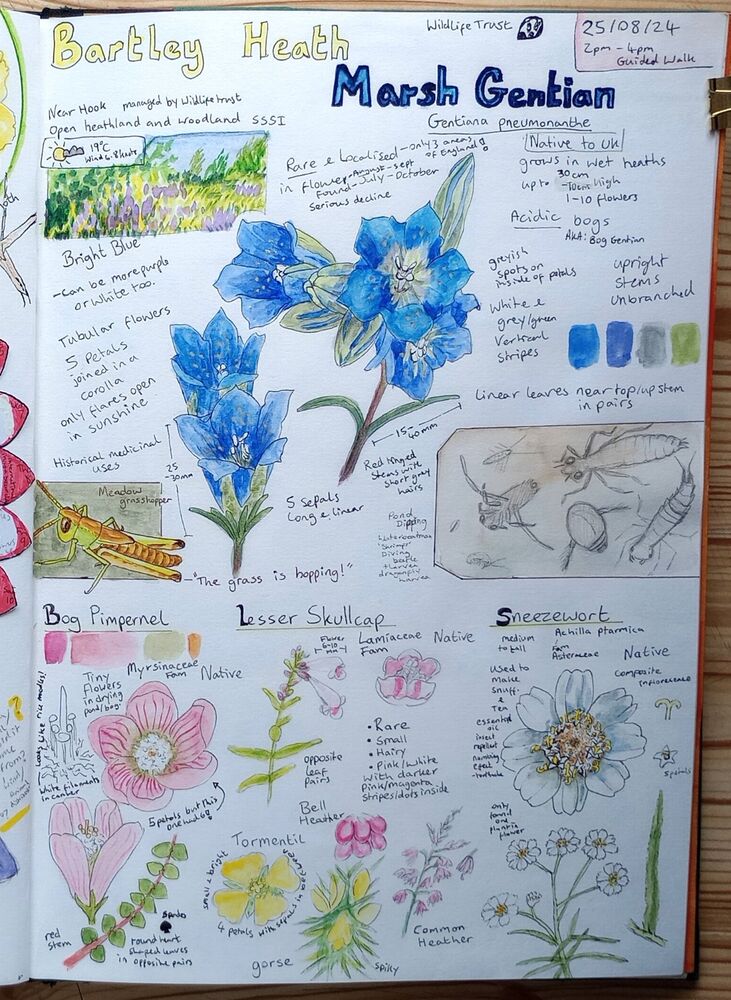 Bartley Heath
Wildlife Trust
25/08/24
2pm - 4pm
Guided Walk
Marsh Gentian
Gentiana pneumonanthe
Near Hook managed by Wildlife trust
Open heathland and woodland SSSI
19°C
Wind 6.8 knots
Rare & Localised - only 3 areas
of England!
in flower August - Sept
Found - July - October
Serious decline
Native to UK
grows in wet heaths
up to 30cm high
1-10 flowers
Acidic bogs
AKA: Bog Gentian
greyish
spots on
inside of petals
upright
stems
unbranched
White &
grey/green
Vertical
stripes
Bright Blue
- can be more purple
or white too.
Tubular flowers
5 Petals
joined in a
corolla
only flares open
in sunshine
Historical medicinal
uses
25
-30mm
Linear leaves near top/up stem
in pairs
15-
40mm
Red tinged
stems with
short gray
hairs
5 Sepals
Long & linear
Meadow
grasshopper
"The grass is hopping!"
Pond
Dipping
Waterboatman
Shrimps
Diving
beetle
+ larva
dragonfly
larvea
Bog Pimpernel
Myrsinaceae
Fam
Native
Tiny
flowers
in drying
pond/bog.
Looks like rice noodles!
White filaments
in center
5 petals but this
one had 6!
red
Stem
Spade
round heart
shaped leaves
in opposite pairs
Lesser Skullcap
Flower
6-10
mm
Lamiaceae
Fam
Native
opposite
leaf
pairs
• Rare
• Small
• Hairy
• Pink/white
with darker
Pink/magenta
Stripes/dots inside
Bell
Heather
Tormentil
small & bright
4 petals with sepals in between
gorse
Spiky
Common
Heather
Sneezewort
medium
to tall
Achilla ptarmica
Fam
Asteraceae
Native
Composite
inflorescence
Used to
make
snuff
&
Tea
essential
oil
insect
repellent
numbing
effect
-toothache
sepals
only
found
one
plant in
flower